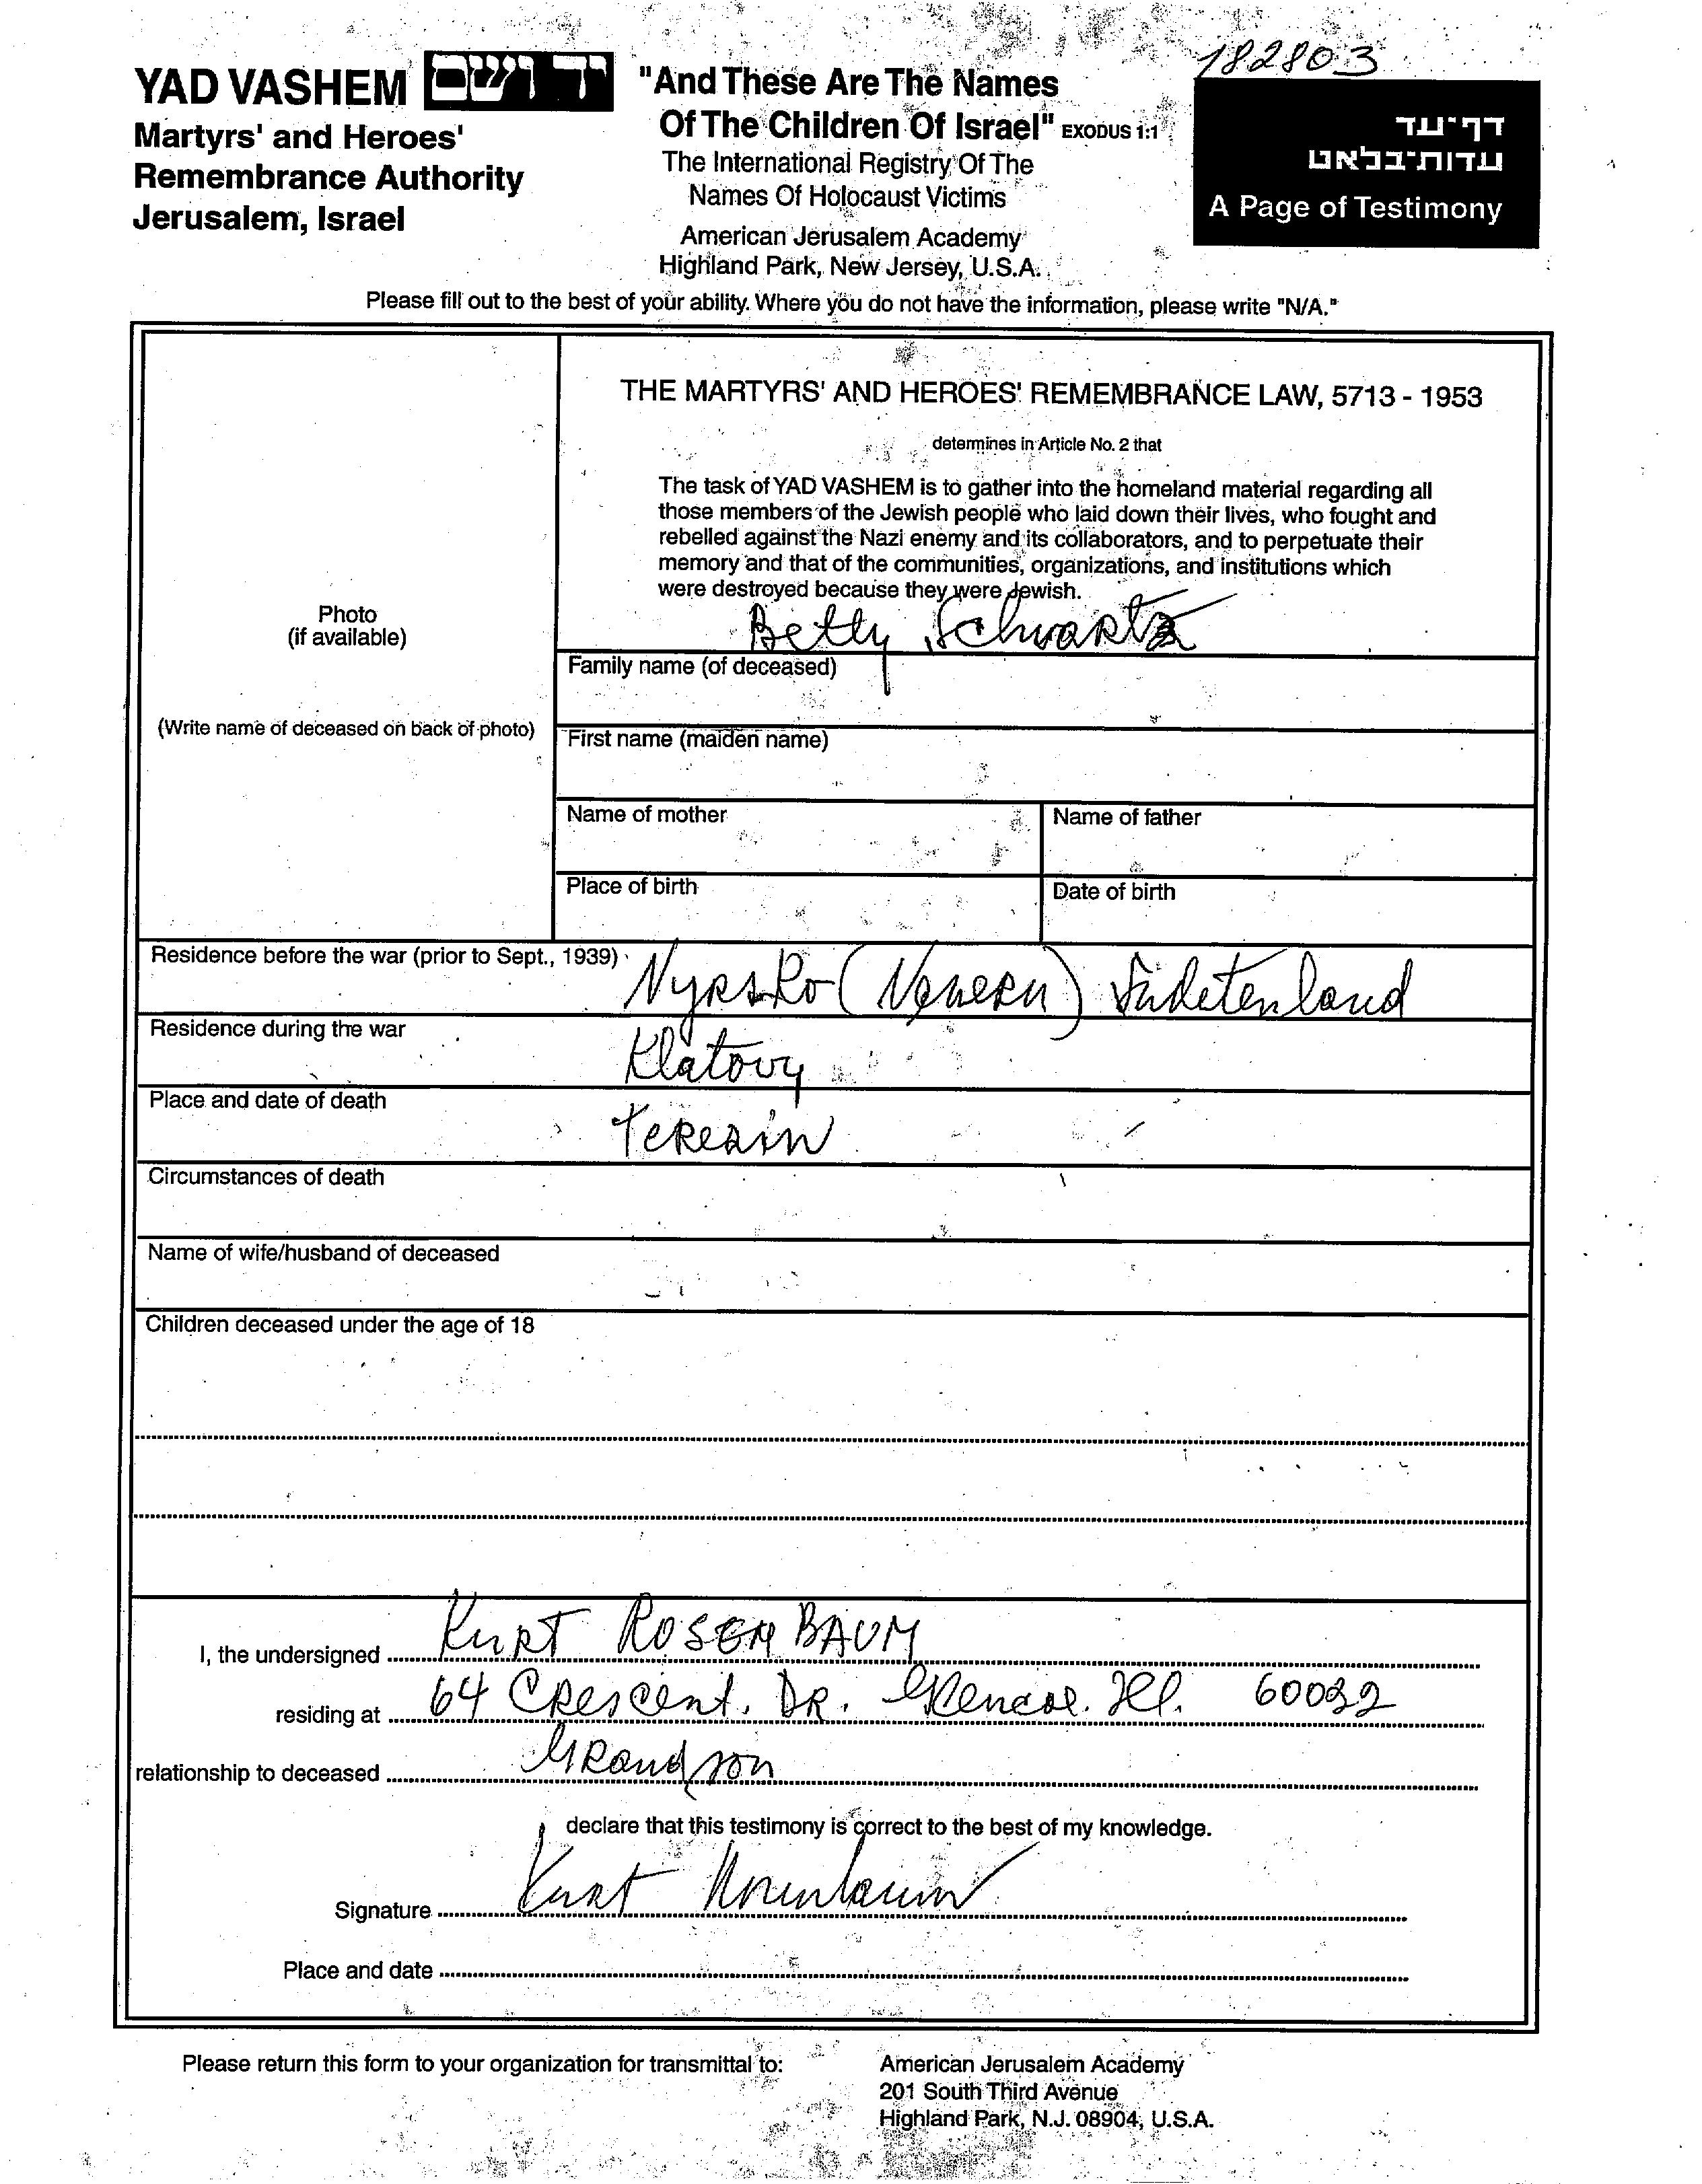 182803
YAD VASHEM יד ושם
Martyrs' and Heroes'
Remembrance Authority
Jerusalem, Israel
"And These Are The Names
Of The Children Of Israel" EXODUS 1:1
The International Registry Of The
Names Of Holocaust Victims
American Jerusalem Academy
Highland Park, New Jersey, U.S.A.
דף-עד
עדות-בלאט
A Page of Testimony
Please fill out to the best of your ability. Where you do not have the information, please write "N/A."
THE MARTYRS' AND HEROES' REMEMBRANCE LAW, 5713 - 1953
determines in Article No. 2 that
The task of YAD VASHEM is to gather into the homeland material regarding all
those members of the Jewish people who laid down their lives, who fought and
rebelled against the Nazi enemy and its collaborators, and to perpetuate their
memory and that of the communities, organizations, and institutions which
were destroyed because they were Jewish.
Photo
(if available)
(Write name of deceased on back of photo)
Betty Schwartz
Family name (of deceased)
First name (maiden name)
Name of mother
Name of father
Place of birth
Date of birth
Residence before the war (prior to Sept., 1939) Nyrsko ( ) Sudetenland
Residence during the war Klatovy
Place and date of death Terezin
Circumstances of death
Name of wife/husband of deceased
Children deceased under the age of 18
I, the undersigned Kurt ROSENBAUM
residing at 64 Crescent. DR. Glencoe. Ill. 60022
relationship to deceased Grandson
declare that this testimony is correct to the best of my knowledge.
Signature Kurt Rosenbaum
Place and date
Please return this form to your organization for transmittal to:
American Jerusalem Academy
201 South Third Avenue
Highland Park, N.J. 08904, U.S.A.